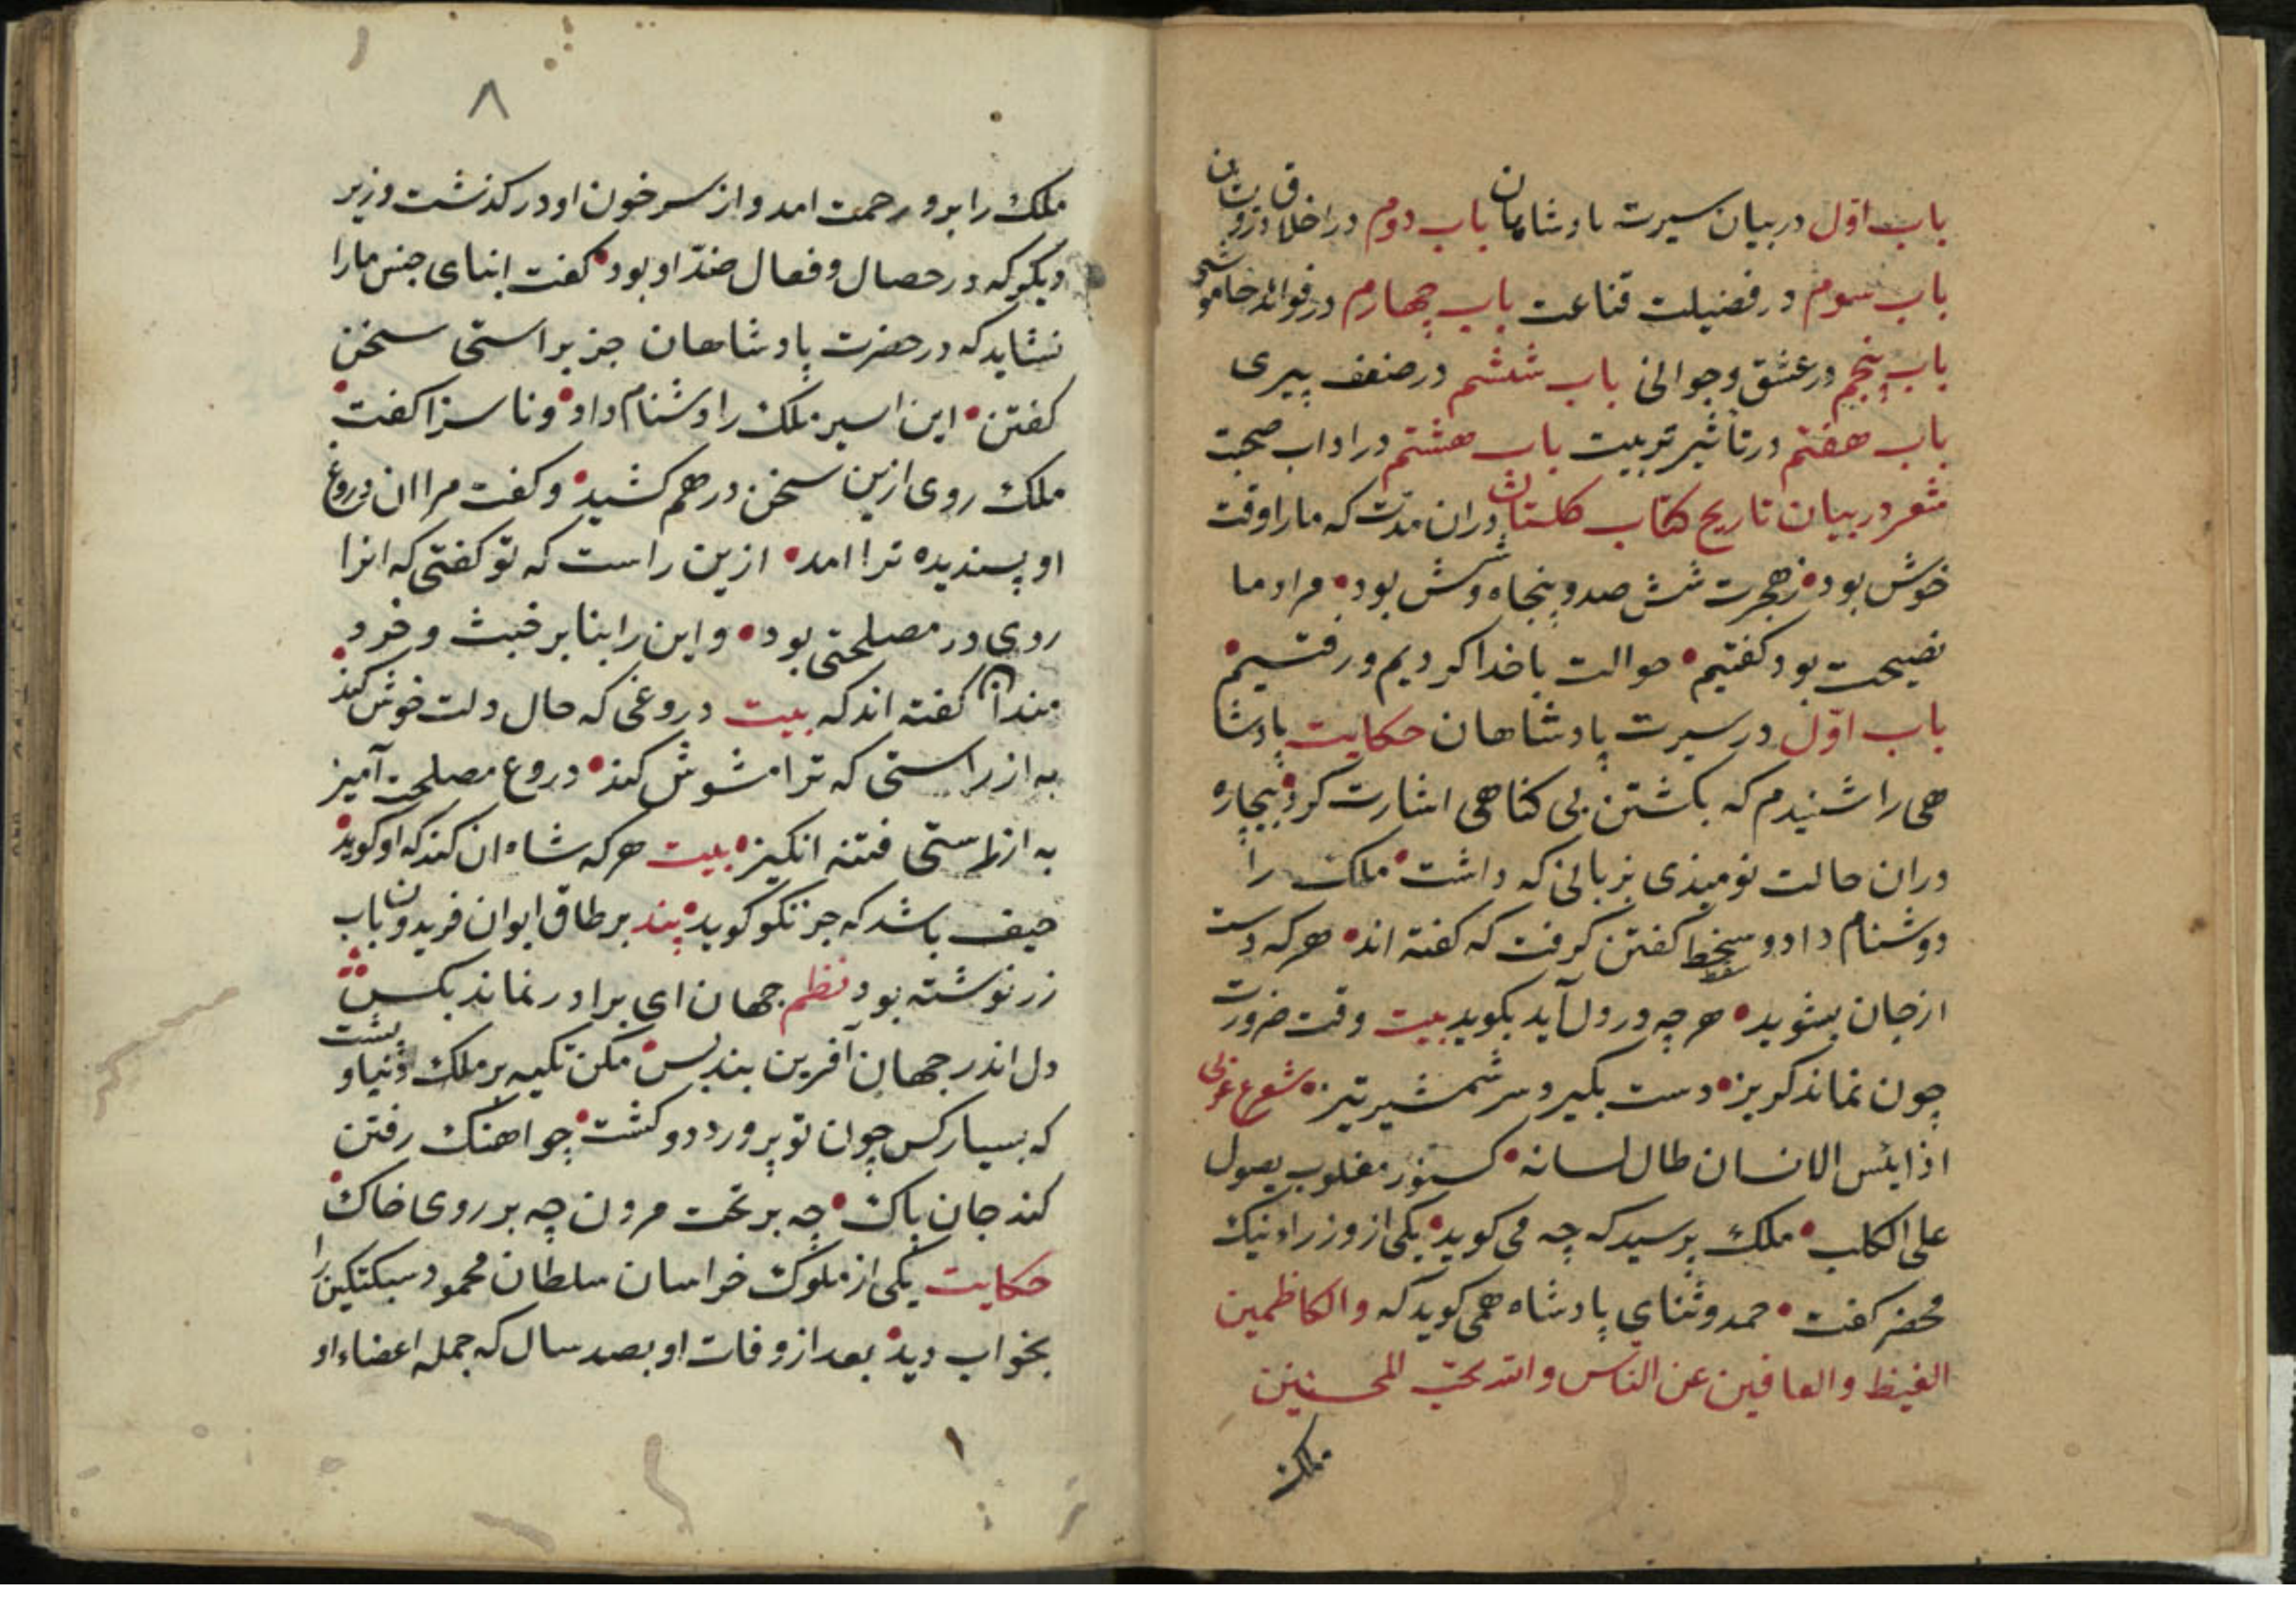 باب اوّل در بیان سیرت پادشاهان باب دوم در اخلاق درویشان
باب سوم در فضیلت قناعت باب چهارم در فوائد خاموشی
باب پنجم در عشق وجوانی باب ششم در ضعف پیری
باب هفتم در تأثیر تربیت باب هشتم در اداب صحبت
شعر در بیان تاریخ کتاب کلستان دران مدت که ما را وقت
خوش بود زهجرت شش صد وپنجاه وشش بود مراد ما
نصیحت بود کفتیم حوالت با خدا کردیم ورفتیم
باب اوّل در سیرت پادشاهان حکایت پادشا
هی را شنیدم که بکشتن بی کناهی اشارت کرد بیچاره
دران حالت نومیذی بزبانی که داشت ملک را
دوشنام داد و سخط کفتن کرفت که کفته اند هر که دست
از جان بشوید هر چه در دل آید بکوید بیت وقت ضرورت
چون نماند کریز دست بکیرد سر شمشیر تیز شعر عربی
اذا ایئس الانسان طال لسانه کسنور مغلوب یصول
علی الکلب ملک پرسید که چه می کوید یکی از وزراء نیک
محضر کفت حمد وثنای پادشاه همی کوید که والکاظمین
الغیظ والعافین عن الناس والله یحبّ المحسنین
ملک
۸
ملک را برو رحمت امد واز سر خون او در کذشت وزیر
دیکر که در حصال وفعال ضدّ او بود کفت ابنای جنس ما را
نشاید که در حضرت پادشاهان جز براستی سخن
کفتن این اسیر ملک را دشنام داد وناسزا کفت
ملک روی ازین سخن در هم کشید وکفت مرا ان دروغ
او پسندیده ترا امد ازین راست که تو کفتی که انرا
روی در مصلحتی بود واین را بنا بر خبث وخرد
مندان کفته اند که بیت دروغی که حال دلت خوش کند
به از راستی که ترا مشوش کند دروغ مصلحت آمیز
به از راستی فتنه انکیز بیت هر که شاه ان کند که او کوید
حیف باشد که جز نکو کوید پند بر طاق ایوان فریدون باب
زر نوشته بود نظم جهان ای برادر نماند بکس
دل اندر جهان آفرین بند بس مکن تکیه بر ملک دنیا و پشت
که بسیار کس چون تو پرورد وکشت چو اهنک رفتن
کند جان پاک چه بر تخت مردن چه بر روی خاک
حکایت یکی از ملوک خراسان سلطان محمود سبکتکین را
بخواب دید بعد از وفات او بصد سال که جمله اعضاء او